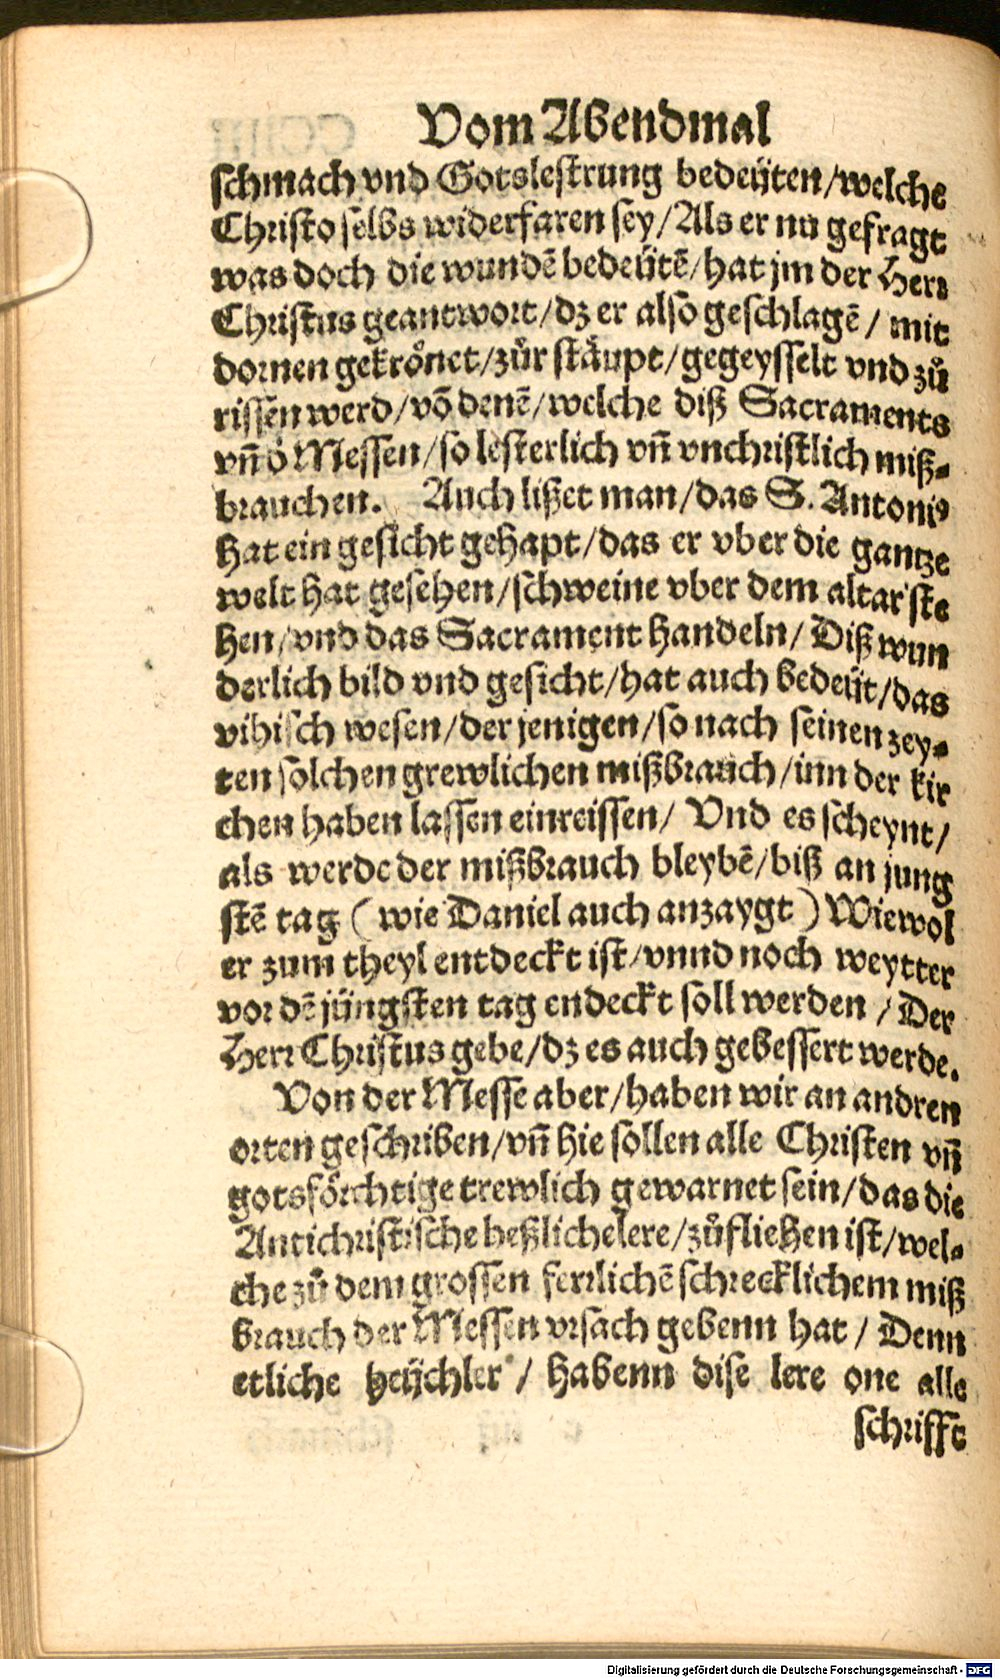 Vom Abendmal
schmach vnd Gotslestrung bedeüten/welche
Christo selbs widerfaren sey/Als er nu gefragt
was doch die wundē bedeütē/hat jm der Herr
Christus geantwort/dz er also geschlagē/ mit
dornen gekrönet/zůr stäupt/gegeysselt vnd zů
rissen werd/võ denē/welche diß Sacraments
vñ ð Messen/so lesterlich vñ vnchristlich miß-
brauchen. Auch lißet man/das S. Antoniꝰ
hat ein gesicht gehapt/das er vber die gantze
welt hat gesehen/schweine vber dem altar ste
hen/vnd das Sacrament handeln/ Diß wun
derlich bild vnd gesicht/hat auch bedeüt/das
vihisch wesen/der jenigen/so nach seinen zey-
ten solchen grewlichen mißbrauch/inn der kir
chen haben lassen einreissen/ Vnd es scheynt/
als werde der mißbrauch bleybē/biß an jung
stē tag (wie Daniel auch anzaygt) Wiewol
er zum theyl entdeckt ist/vnnd noch weytter
vor dē jüngsten tag endeckt soll werden /Der
Herr Christus gebe/dz es auch gebessert werde.
Von der Messe aber/haben wir an andren
orten geschriben/vñ hie sollen alle Christen vñ
gotsförchtige trewlich gewarnet sein/das die
Antichristische heßliche lere/zůfliehen ist/wel-
che zů dem grossen ferrlichē schrecklichem miß
brauch der Messen vrsach gebenn hat/ Denn
etliche heüchler / habenn dise lere one alle
schrifft
Digitalisierung gefördert durch die Deutsche Forschungsgemeinschaft - DFG